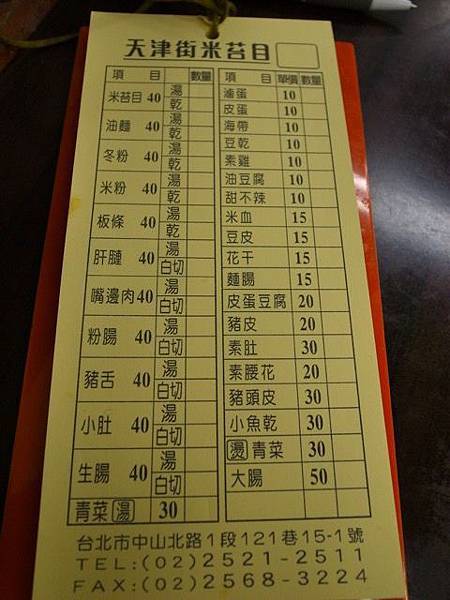 天津街米苔目
項 目 數量 項 目 單價 數量
米苔目 40 湯 乾
油麵 40 湯 乾
冬粉 40 湯 乾
米粉 40 湯 乾
板條 40 湯 乾
肝腱 40 湯 白切
嘴邊肉 40 湯 白切
粉腸 40 湯 白切
豬舌 40 湯 白切
小肚 40 湯 白切
生腸 40 湯 白切
青菜 湯 30
滷蛋 10
皮蛋 10
海帶 10
豆乾 10
素雞 10
油豆腐 10
甜不辣 10
米血 15
豆皮 15
花干 15
麵腸 15
皮蛋豆腐 20
豬皮 20
素肚 30
素腰花 20
豬頭皮 30
小魚乾 30
燙 青菜 30
大腸 50
台北市中山北路1段121巷15-1號
TEL:(02)2521-2511
FAX:(02)2568-3224